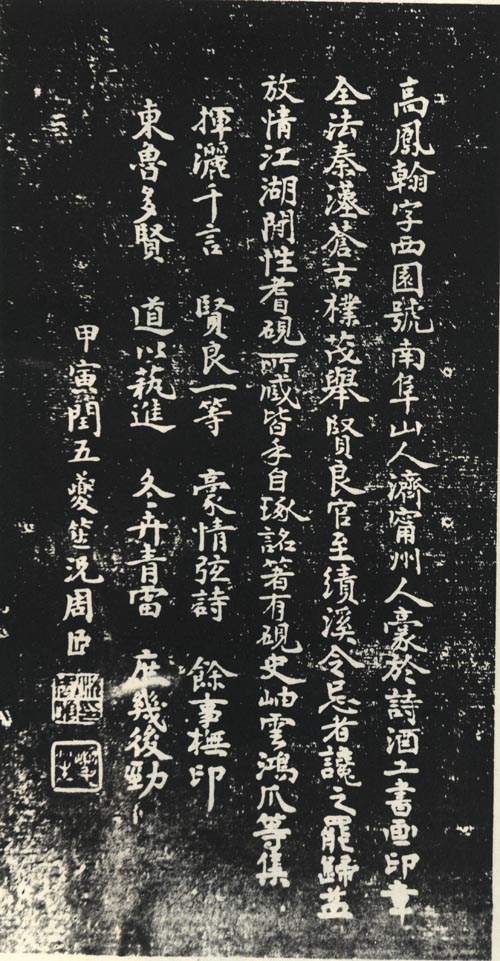 高鳳翰字西園號南阜山人濟甯州人豪於詩酒工書画印章
全法秦漢蒼古樸茂舉賢良官至績溪令忌者讒之罷歸益
放情江湖閒性耆硯所藏皆手自琢銘著有硯史岫雲鴻爪等集
揮灑千言 賢良一等 豪情弦詩 餘事橅印
東魯多賢 道以蓺進 冬卉青雷 庶幾後勁
甲寅閏五夔笙況周𦣞